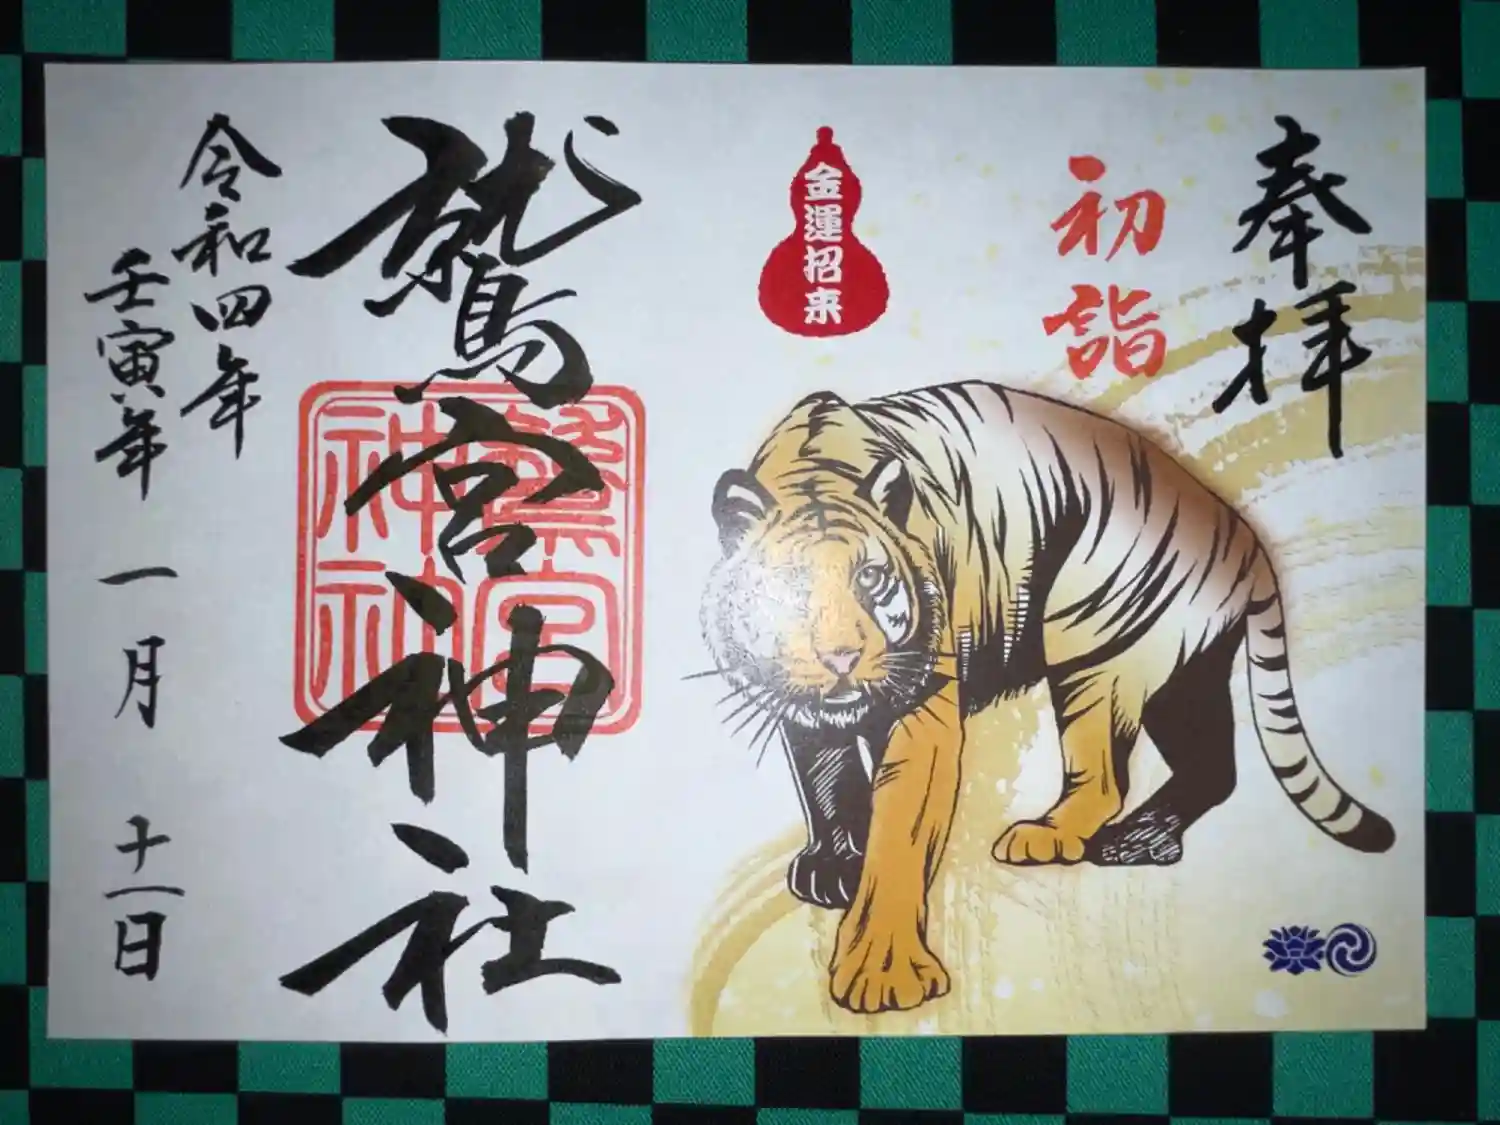 奉拝
初詣
金運招来
鷲宮神社
鷲宮
神社
令和四年
壬寅年
一月十一日